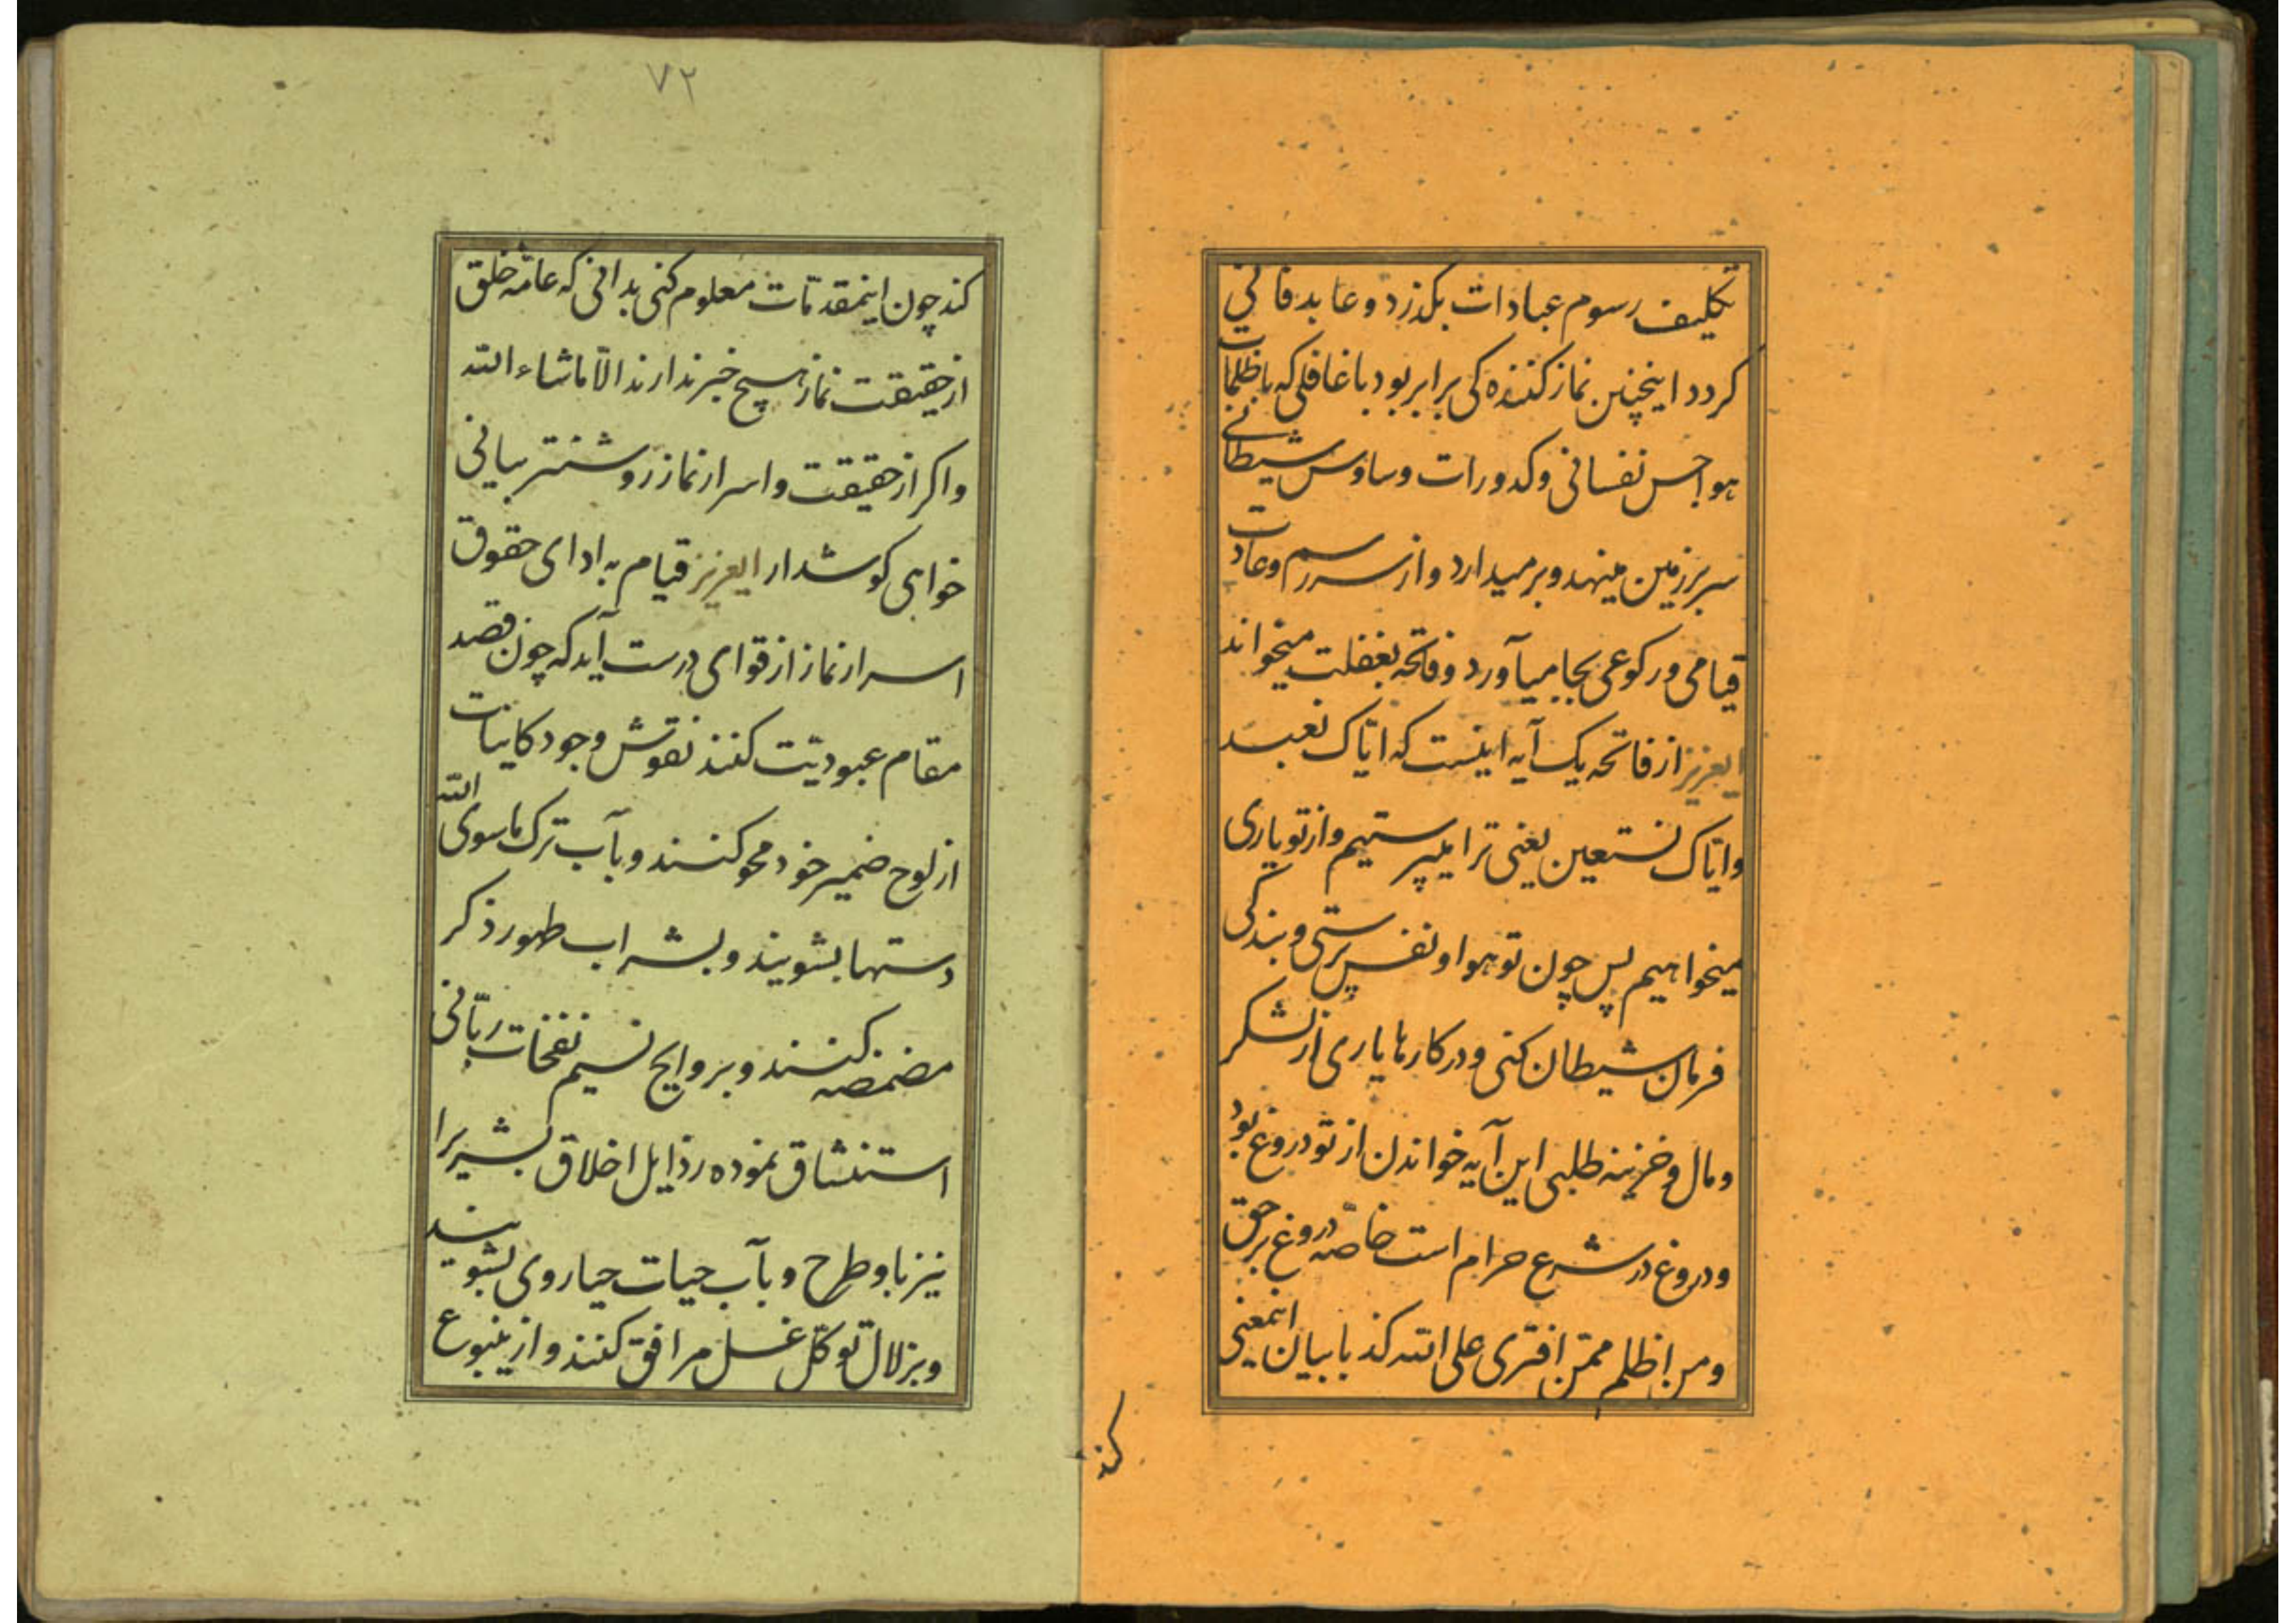 تکلیف رسوم عبادات بگذرد و عابد فانی
کردد اینچنین نماز کننده کی برابر بود با غافلی که با ظلمات
هواجس نفسانی و کدورات وساوس شیطانی
سر بر زمین مینهد و بر میدارد و از سر رسم و عادت
قیامی و رکوعی بجا میآورد و فاتحه بغفلت میخواند
ایعزیز از فاتحه یک آیه اینست که ایّاک نعبد
و ایّاک نستعین یعنی ترا میپرستیم و از تو یاری
میخواهیم پس چون تو هوا و نفس پرستی و بندکی
فرمان شیطان کنی و در کارها یاری از لشکر
و مال و خزینه طلبی این آیه خواندن از تو دروغ بود
و دروغ در شرع حرام است خاصّه دروغ بر حق
و من اظلم ممّن افتری علی الله کذبا بیان اینمعنی
کند
۷۲
کند چون اینمقدمّات معلوم کنی بدانی که عامّه خلق
از حقیقت نماز هیچ خبر ندارند الّا ماشاء الله
و اکر از حقیقت و اسرار نماز روشنتر بیانی
خواهی کوش دار ایعزیز قیام به ادای حقوق
اسرار نماز از قوای درست آید که چون قصد
مقام عبودیّت کنند نقوش وجود کاینات
از لوح ضمیر خود محو کنند و بآب ترک ماسوی الله
دستها بشویند و بشراب طهور ذکر
مضمضه کنند و بروایح نسیم نفخات ربّانی
استنشاق نموده رذایل اخلاق بشریرا
نیز باو طرح و بآب حیات حیا روی بشویند
و بزلال توکّل غسل مرافق کنند و از ینبوع